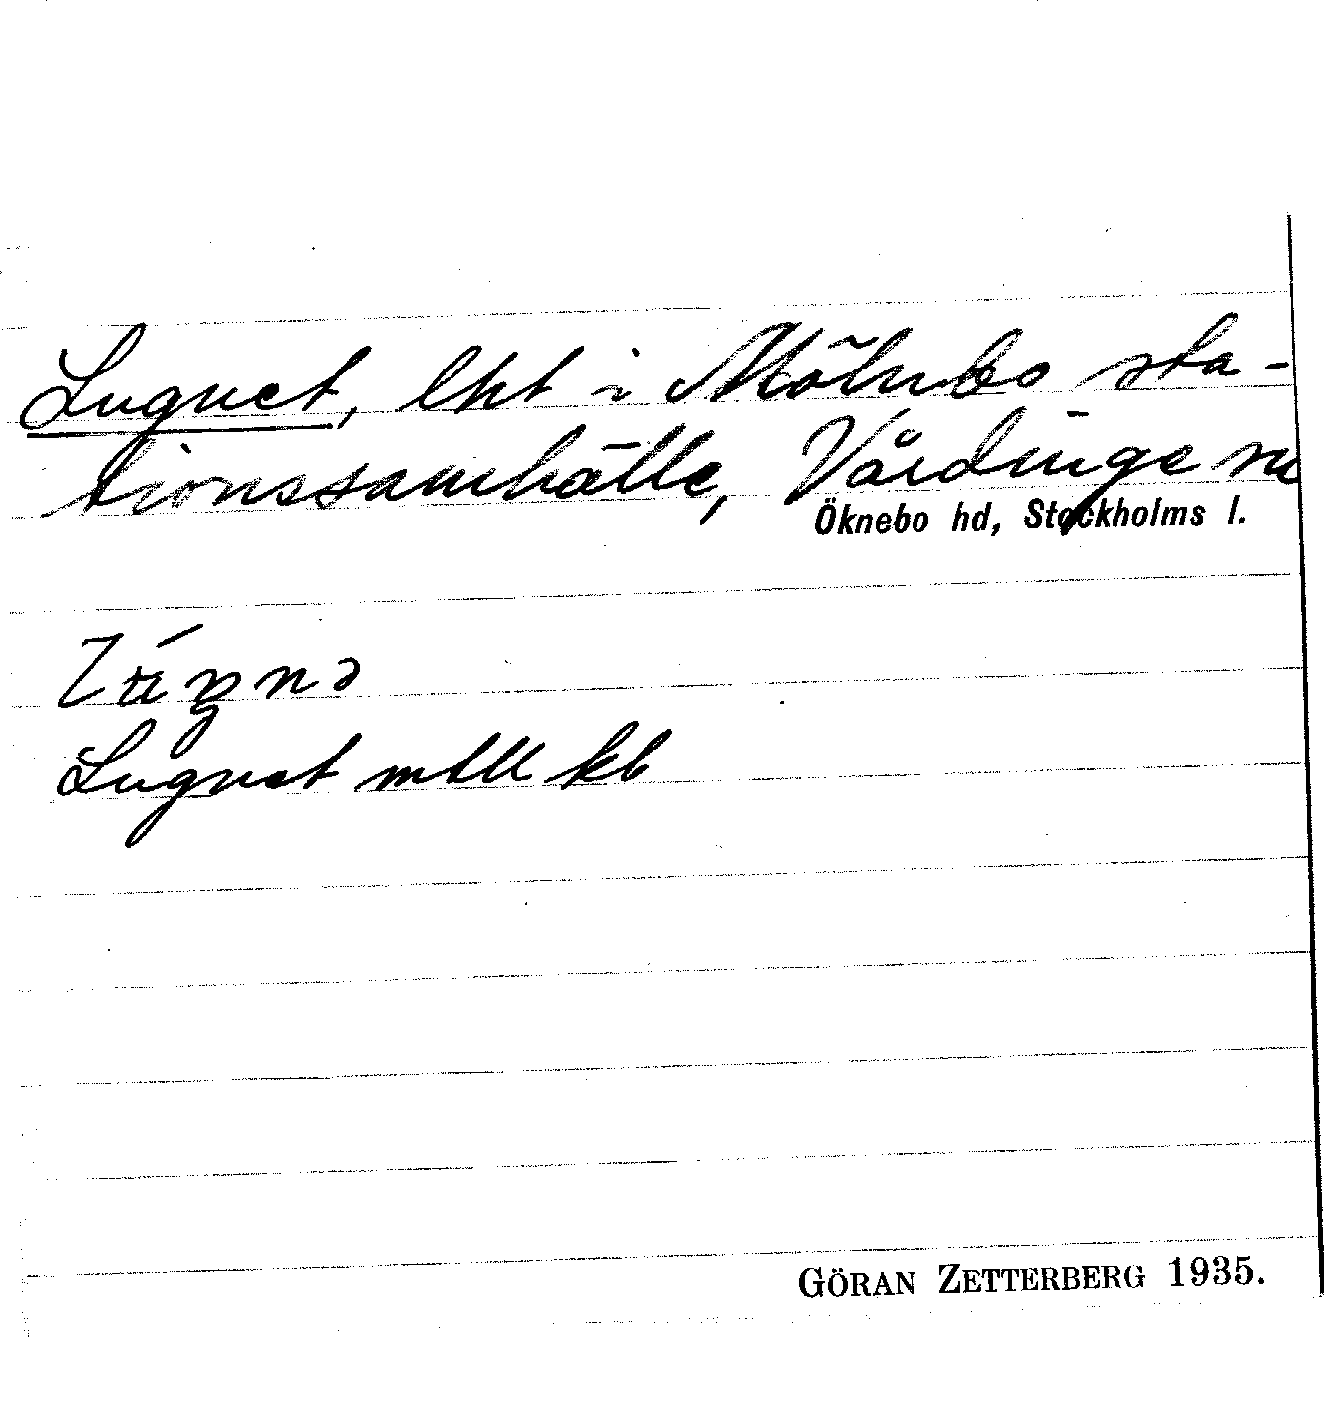 Lugnet, lht i Mölnbo sta-
tionssamhälle, Vårdinge sn
Öknebo hd, Stockholms l.
Lugnet mtll kb
GÖRAN ZETTERBERG 1935.